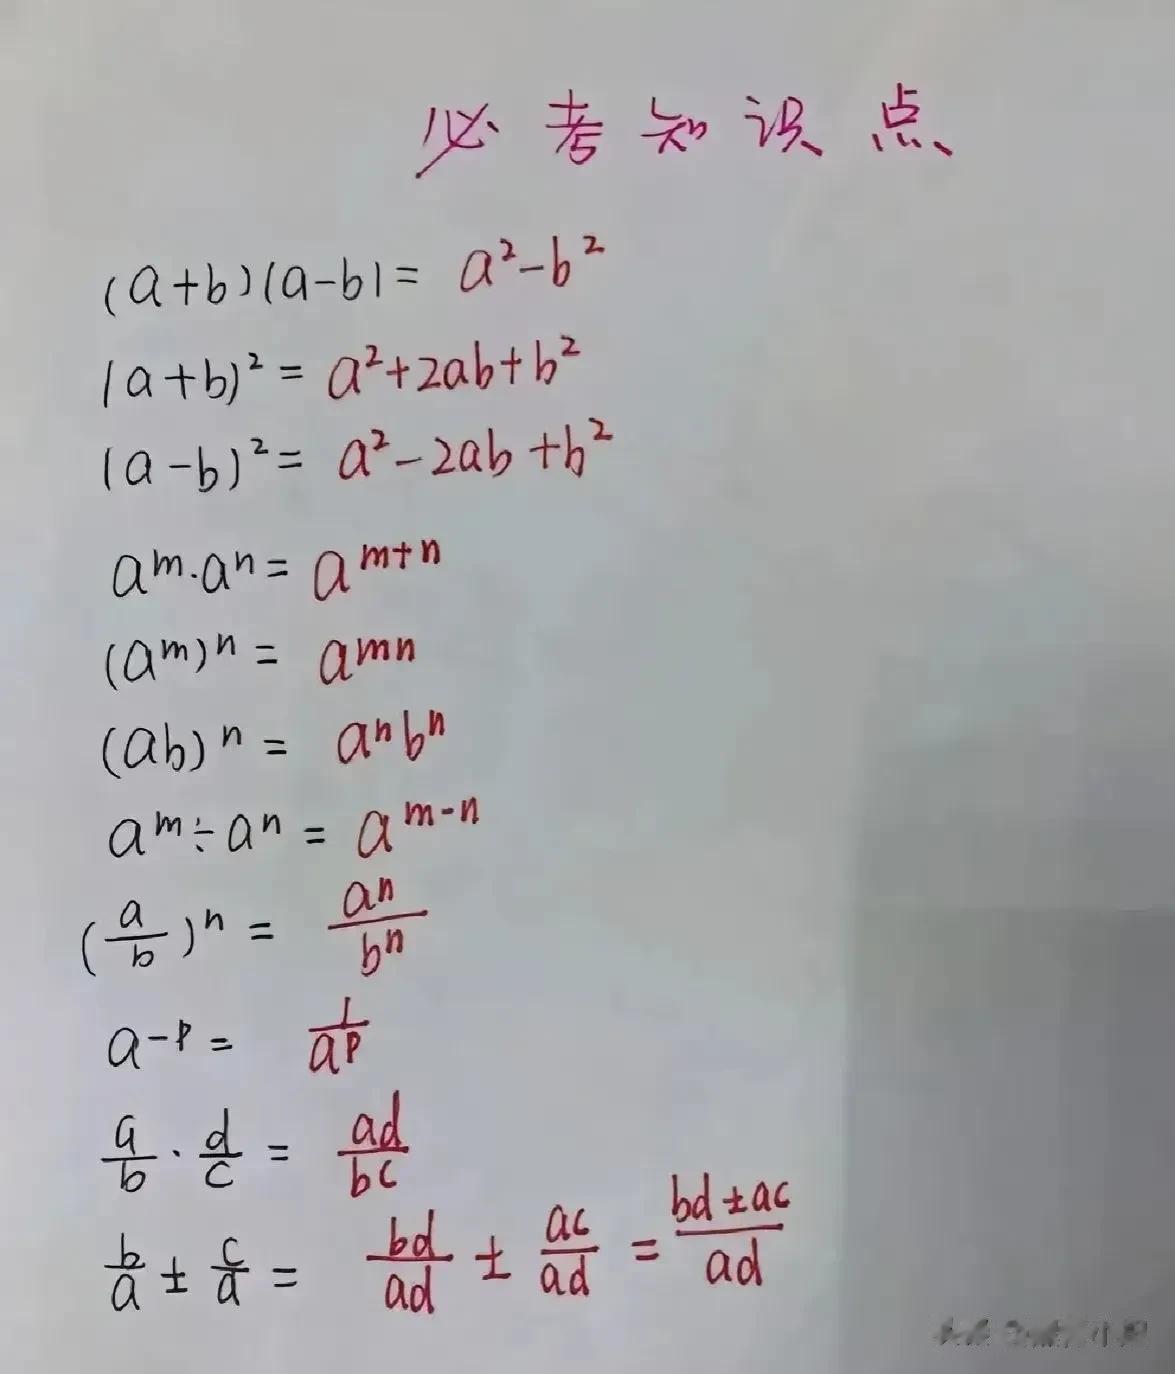 必考知识点
(a+b)(a-b)= a²-b²
(a+b)²= a²+2ab+b²
(a-b)²= a²-2ab+b²
aᵐ·aⁿ= aᵐ⁺ⁿ
(aᵐ)ⁿ= aᵐⁿ
(ab)ⁿ= aⁿbⁿ
aᵐ÷aⁿ= aᵐ⁻ⁿ
(a/b)ⁿ= aⁿ/bⁿ
a⁻ᵖ= 1/aᵖ
a/b · d/c = ad/bc
b/a ± c/d = bd/ad ± ac/ad = (bd±ac)/ad